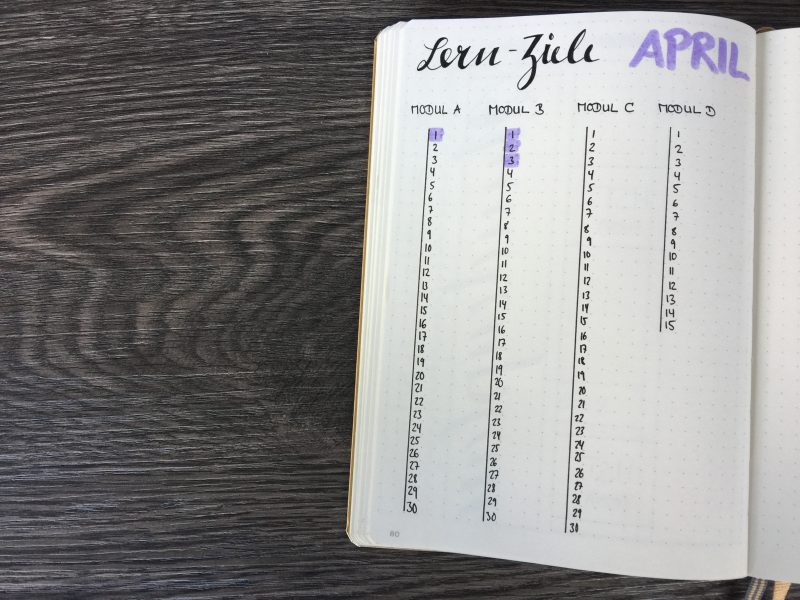 Lern-Ziele APRIL
MODUL A MODUL B MODUL C MODUL D
1 1 1 1
2 2 2 2
3 3 3 3
4 4 4 4
5 5 5 5
6 6 6 6
7 7 7 7
8 8 8 8
9 9 9 9
10 10 10 10
11 11 11 11
12 12 12 12
13 13 13 13
14 14 14 14
15 15 15 15
16 16 16
17 17 17
18 18 18
19 19 19
20 20 20
21 21 21
22 22 22
23 23 23
24 24 24
25 25 25
26 26 26
27 27 27
28 28 28
29 29 29
30 30 30
80